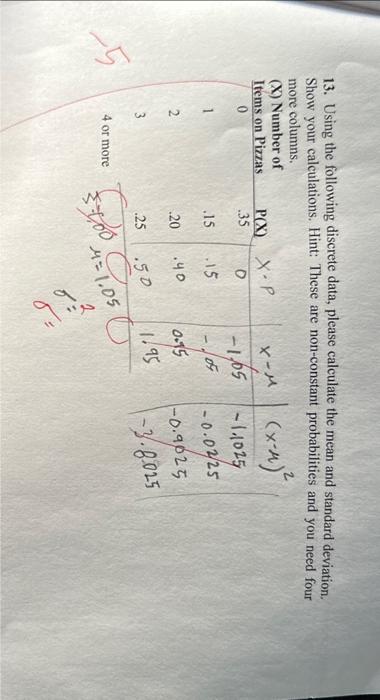 13. Using the following discrete data, please calculate the mean and standard deviation.
Show your calculations. Hint: These are non-constant probabilities and you need four
more columns.
(X) Number of
Items on Pizzas P(X) X·P X-μ (X-μ)²
0 .35 0 -1.05 -1.1025
1 .15 .15 -.05 -0.0225
2 .20 .40 0.95 -0.9025
3 .25 .50 1.95 -3.8025
4 or more
Σ=1.00 μ=1.05
σ²=
σ=
-5